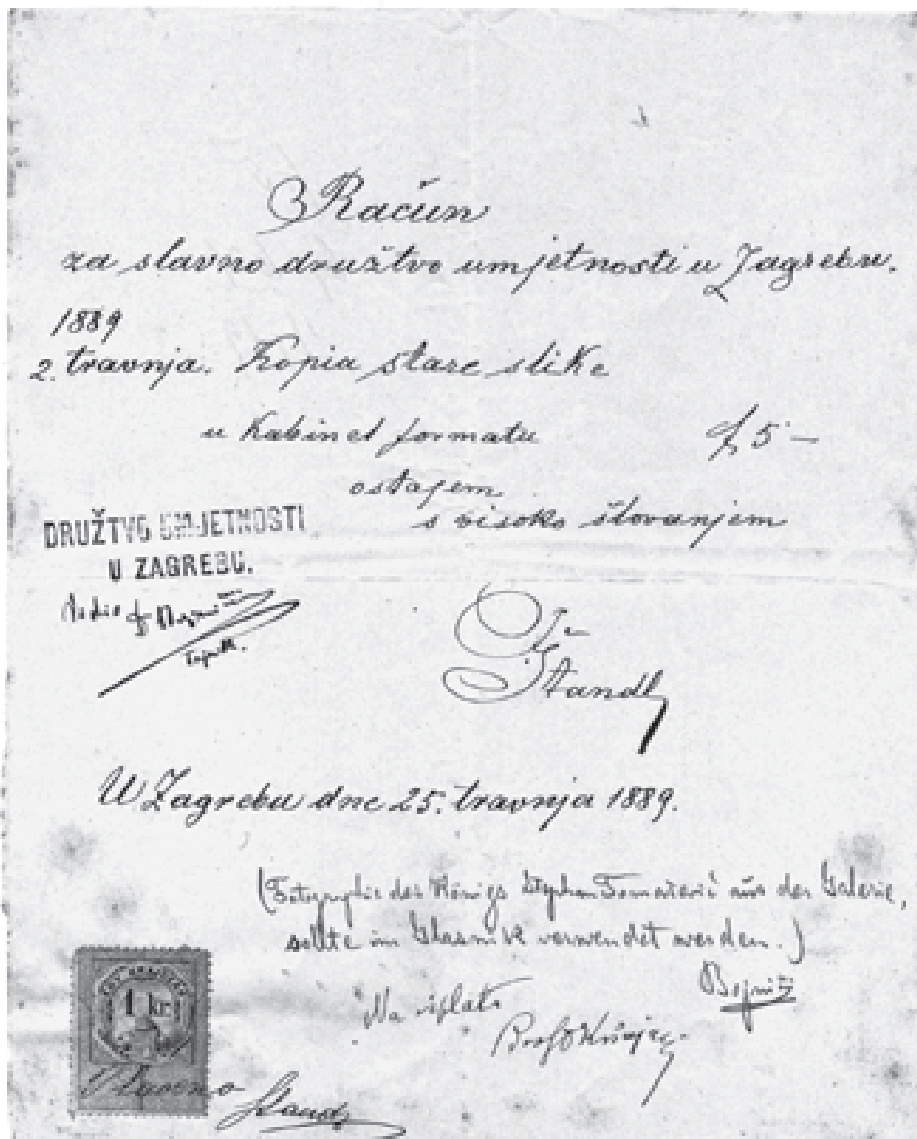 Račun
za slavno družtvo umjetnosti u Zagrebu.
1889
2. travnja. Kopia stare slike
u Kabinet formatu f 5 —
ostajem
s visoko štovanjem
DRUŽTVO UMJETNOSTI
U ZAGREBU.
Vidio
Štandl
U Zagrebu dne 25. travnja 1889.
(Fotographie des Königs Stephan Tomašević aus der Galerie,
sollte im Glasnik verwendet werden.)
Bojničić
Na isplatu
1 kr
Štandl